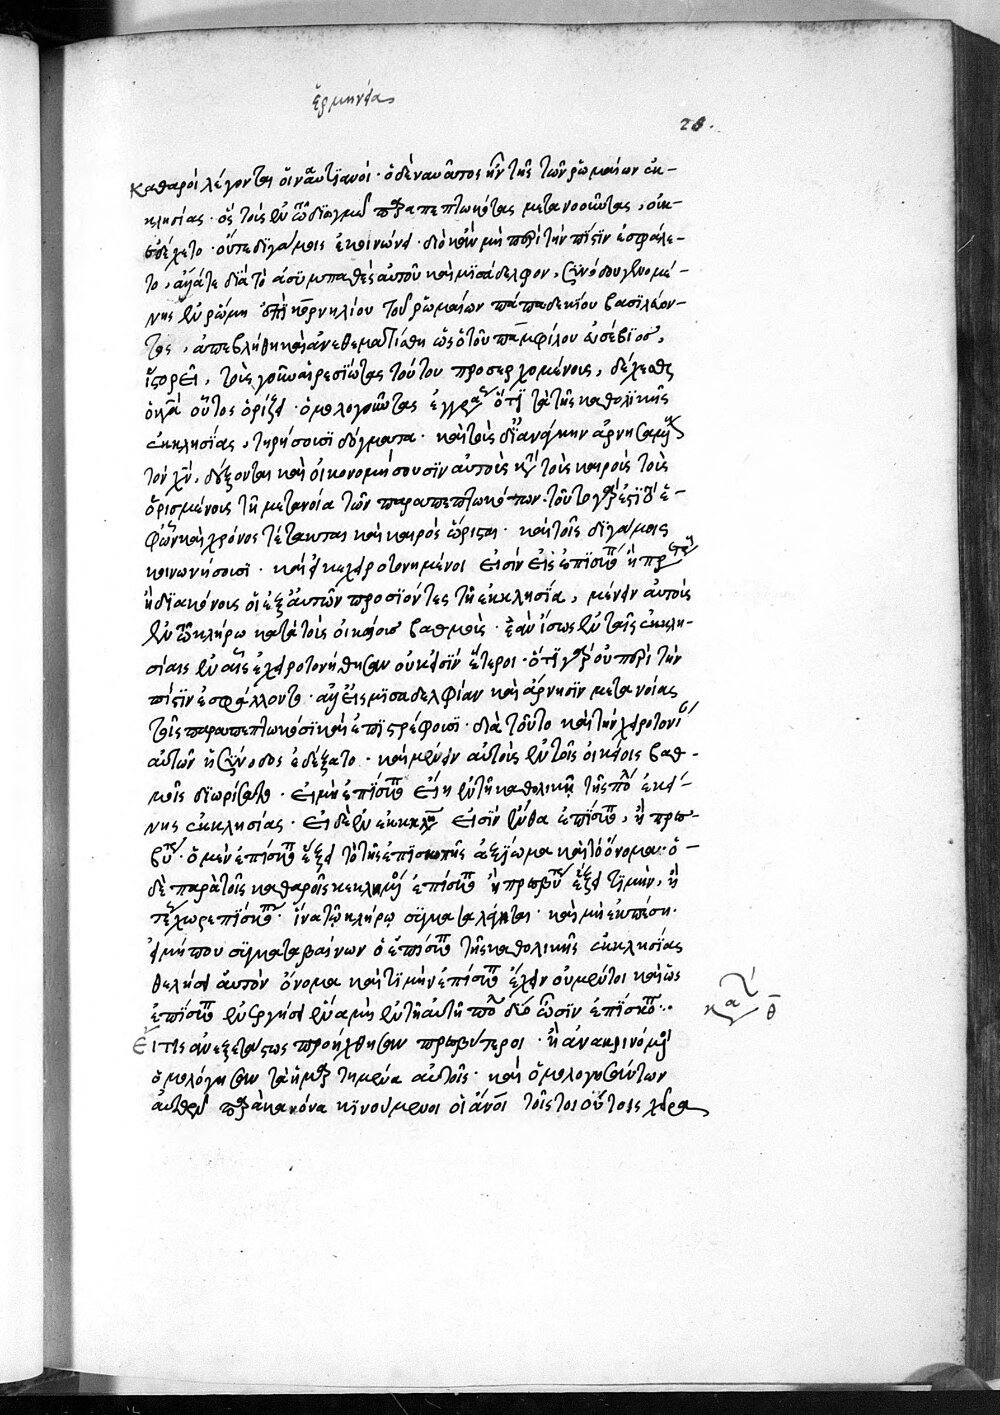 ἑρμηνεία
28.
καθαροὶ λέγονται οἱ ναυατϊανοί · ὁ δὲ ναυᾶτος ἦν τῆς τῶν ῥωμαίων ἐκ-
κλησίας · ὃς τοὺς ἐν τῷ διωγμῷ παραπεπτωκότας μετανοοῦντας, οὐκ
ἐδέχετο · οὔτε διγάμοις ἐκοινώνει · διὸ κἂν μὴ περὶ τὴν πίστϊν ἐσφάλε-
το, ἀλλάγε διὰ τὸ ἀσϋμπαθὲς αὐτοῦ καὶ μϊσάδελφον, συνόδου γενομέ-
νης ἐν ῥώμῃ ἐπὶ κορνηλίου τοῦ ῥωμαίων πάπα δεκίου βασιλέυον-
τος, ἀπεβλήθη καὶ ἀνεθεματίσθη ὡς ὁ τοῦ παμφίλου εὐσέβϊος,
ἱστορεῖ, τοὺς γοῦν αἱρεσϊώτας τούτου προσερχομένους, δέχεσθαι
ὁ κανὼν οὗτος ὁρίζει · ὁμολογοῦντας ἐγγράφως ὅτϊ τὰ τῆς καθολϊκῆς
ἐκκλησίας, τηρήσουσϊ δόγματα · καὶ τοὺς δϊ ἀνάγκην ἀρνησαμένους
τὸν χν, δέξονται καὶ οἰκονομήσουσϊν αὐτοὺς κατὰ τοὺς καιροὺς τοὺς
ὁρισμένους τῇ μετανοία τῶν παραπεπτωκότων · τοῦτο γάρ ἐστϊ τὸ ἐ-
φῶν καὶ χρόνος τέτακται καὶ καιρὸς ὥρισται · καὶ τοῖς διγάμοις
κοινωνήσουσι · καὶ εἰ κεχειροτονημένοι εἰσὶν εἰς ἐπϊσκόπους ἢ πρεσβυτέρους
ἢ διακόνους οἱ ἐξ αὐτῶν προσϊόντες τῇ ἐκκλησία, μένειν αὐτοὺς
ἐν τῷ κλήρω κατὰ τοὺς οἰκείους βαθμοὺς · ἐὰν ἴσως ἐν ταῖς ἐκκλη-
σίαις ἐν αἷς ἐχειροτονήθησαν οὐκ εἰσὶν ἕτεροι · ὅτϊ γὰρ οὐ περὶ τὴν
πίστϊν ἐσφάλλοντο · ἀλλ' εἰς μϊσαδελφίαν καὶ ἄρνησϊν μετανοίας
τοῖς παραπεπτωκόσϊ καὶ ἐπϊστρέφουσϊ · διὰ τοῦτο καὶ τὴν χειροτονίαν
αὐτῶν ἡ σύνοδος ἐδέξατο · καὶ μένειν αὐτοὺς ἐν τοῖς οἰκείοις βαθ-
μοῖς διωρίσατο · εἰ μὴ ἐπϊσκοπος εἴη ἐν τῇ καθολικῇ τῆς πόλεως ἐκεί-
νης ἐκκλησίας · εἰ δὲ ἐν ἐκκλησία εἰσϊν ἔνθα ἐπϊσκοπος, ἢ πρεσ-
βύτερος · ὁ μὲν ἐπίσκοπος ἕξει τὸ τῆς ἐπϊσκοπῆς ἀξϊωμα καὶ τὸ ὄνομα · ὁ -
δὲ παρὰ τοῖς καθαροῖς κεκλημένος ἐπίσκοπος ἢ πρεσβυτέρου ἕξει τϊμὴν, ἢ
τε χωρεπισκόπου · ἵνα τῷ κλήρῳ σϋγκαταλέγηται · καὶ μὴ ἐκπέση ·
εἰ μήπου σϋγκαταβαίνων ὁ ἐπίσκοπος τῆς καθολικῆς ἐκκλησίας
θελήσει αὐτὸν ὄνομα καὶ τϊμὴν ἐπισκόπου ἔχειν οὐ μέντοι καὶ ὡς
ἐπίσκοπος ἐνεργήσει ἵνα μὴ ἐν τῇ αὐτῇ πόλει δύο ὦσϊν ἐπϊσκοποι ·
κα̅ τ θ̅
Εἴ τινες ἀνεξετάστως προήχθησαν πρεσβύτεροι · ἢ ἀνακρινόμενοι
ὡμολόγησαν τὰ ἡμαρτημένα αὐτοῖς · καὶ ὁμολογησάντων
αὐτῶν παρὰ κανόνα κϊνούμενοι οἱ ἄνοι τοῖς τοιούτοις χεῖρα